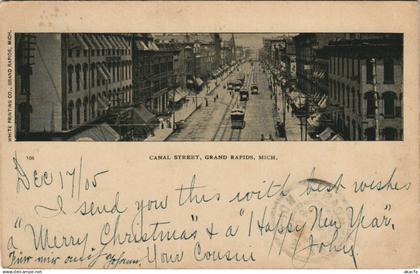 WHITE PRINTING CO., GRAND RAPIDS, MICH.
108
CANAL STREET, GRAND RAPIDS, MICH.
Dec 17/05
I send you this with best wishes
a "Merry Christmas" & a "Happy New Year",
Your Cousin
John